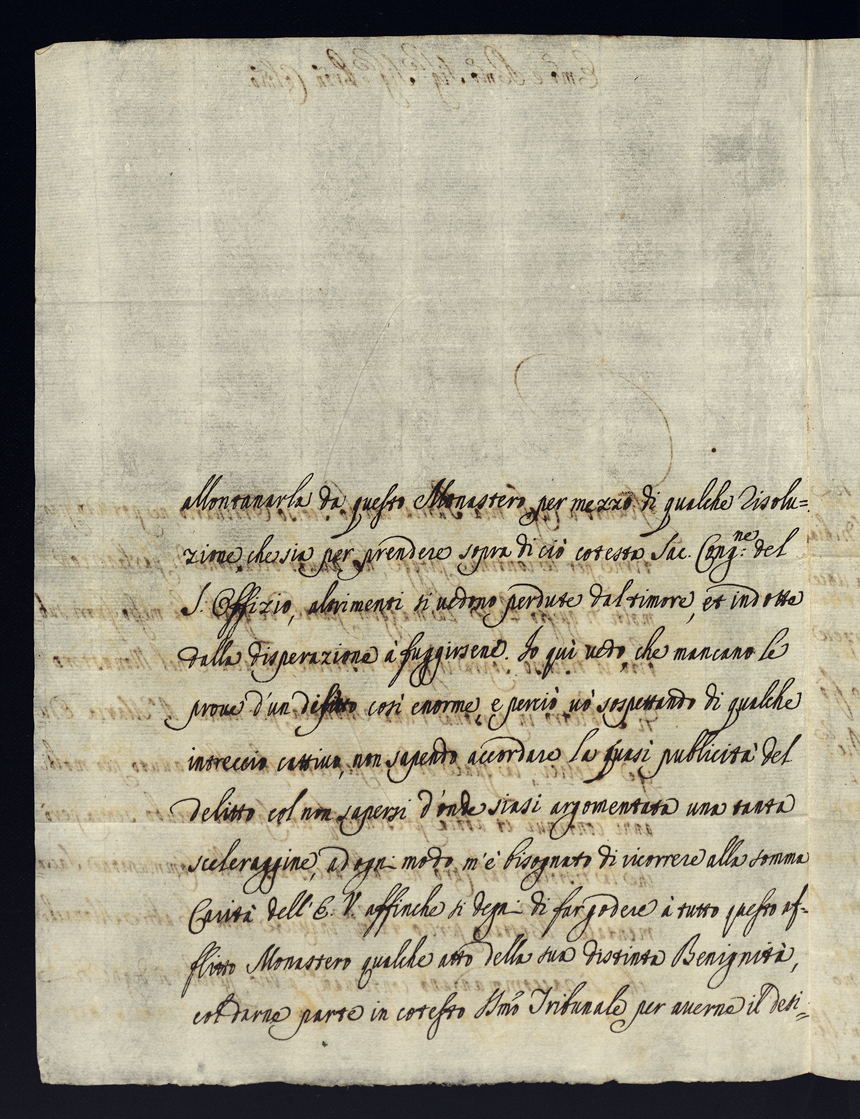 allontanarla da questo Monastero per mezzo di qualche risolu=
zione, che sia per prendere sopra di ciò cotesta Sac. Cong.ne del
S. Offizio, altrimenti si vedono perdute dal timore, et indotte
dalla disperazione à fuggirsene. Io quì vedo, che mancano le
prove d'un delitto così enorme, e perciò vò sospettando di qualche
intreccio cattivo, non sapendo accordare la quasi publicità del
delitto col non sapersi d'onde siasi argomentata una tanta
sceleraggine, ad ogni modo m'è bisognato di ricorrere alla somma
Carità dell'E. V. affinche si degni di far godere à tutto questo af=
flitto Monastero qualche atto della sua distinta Benignità,
col darne parte in cotesto Smo Tribunale per averne il desi=